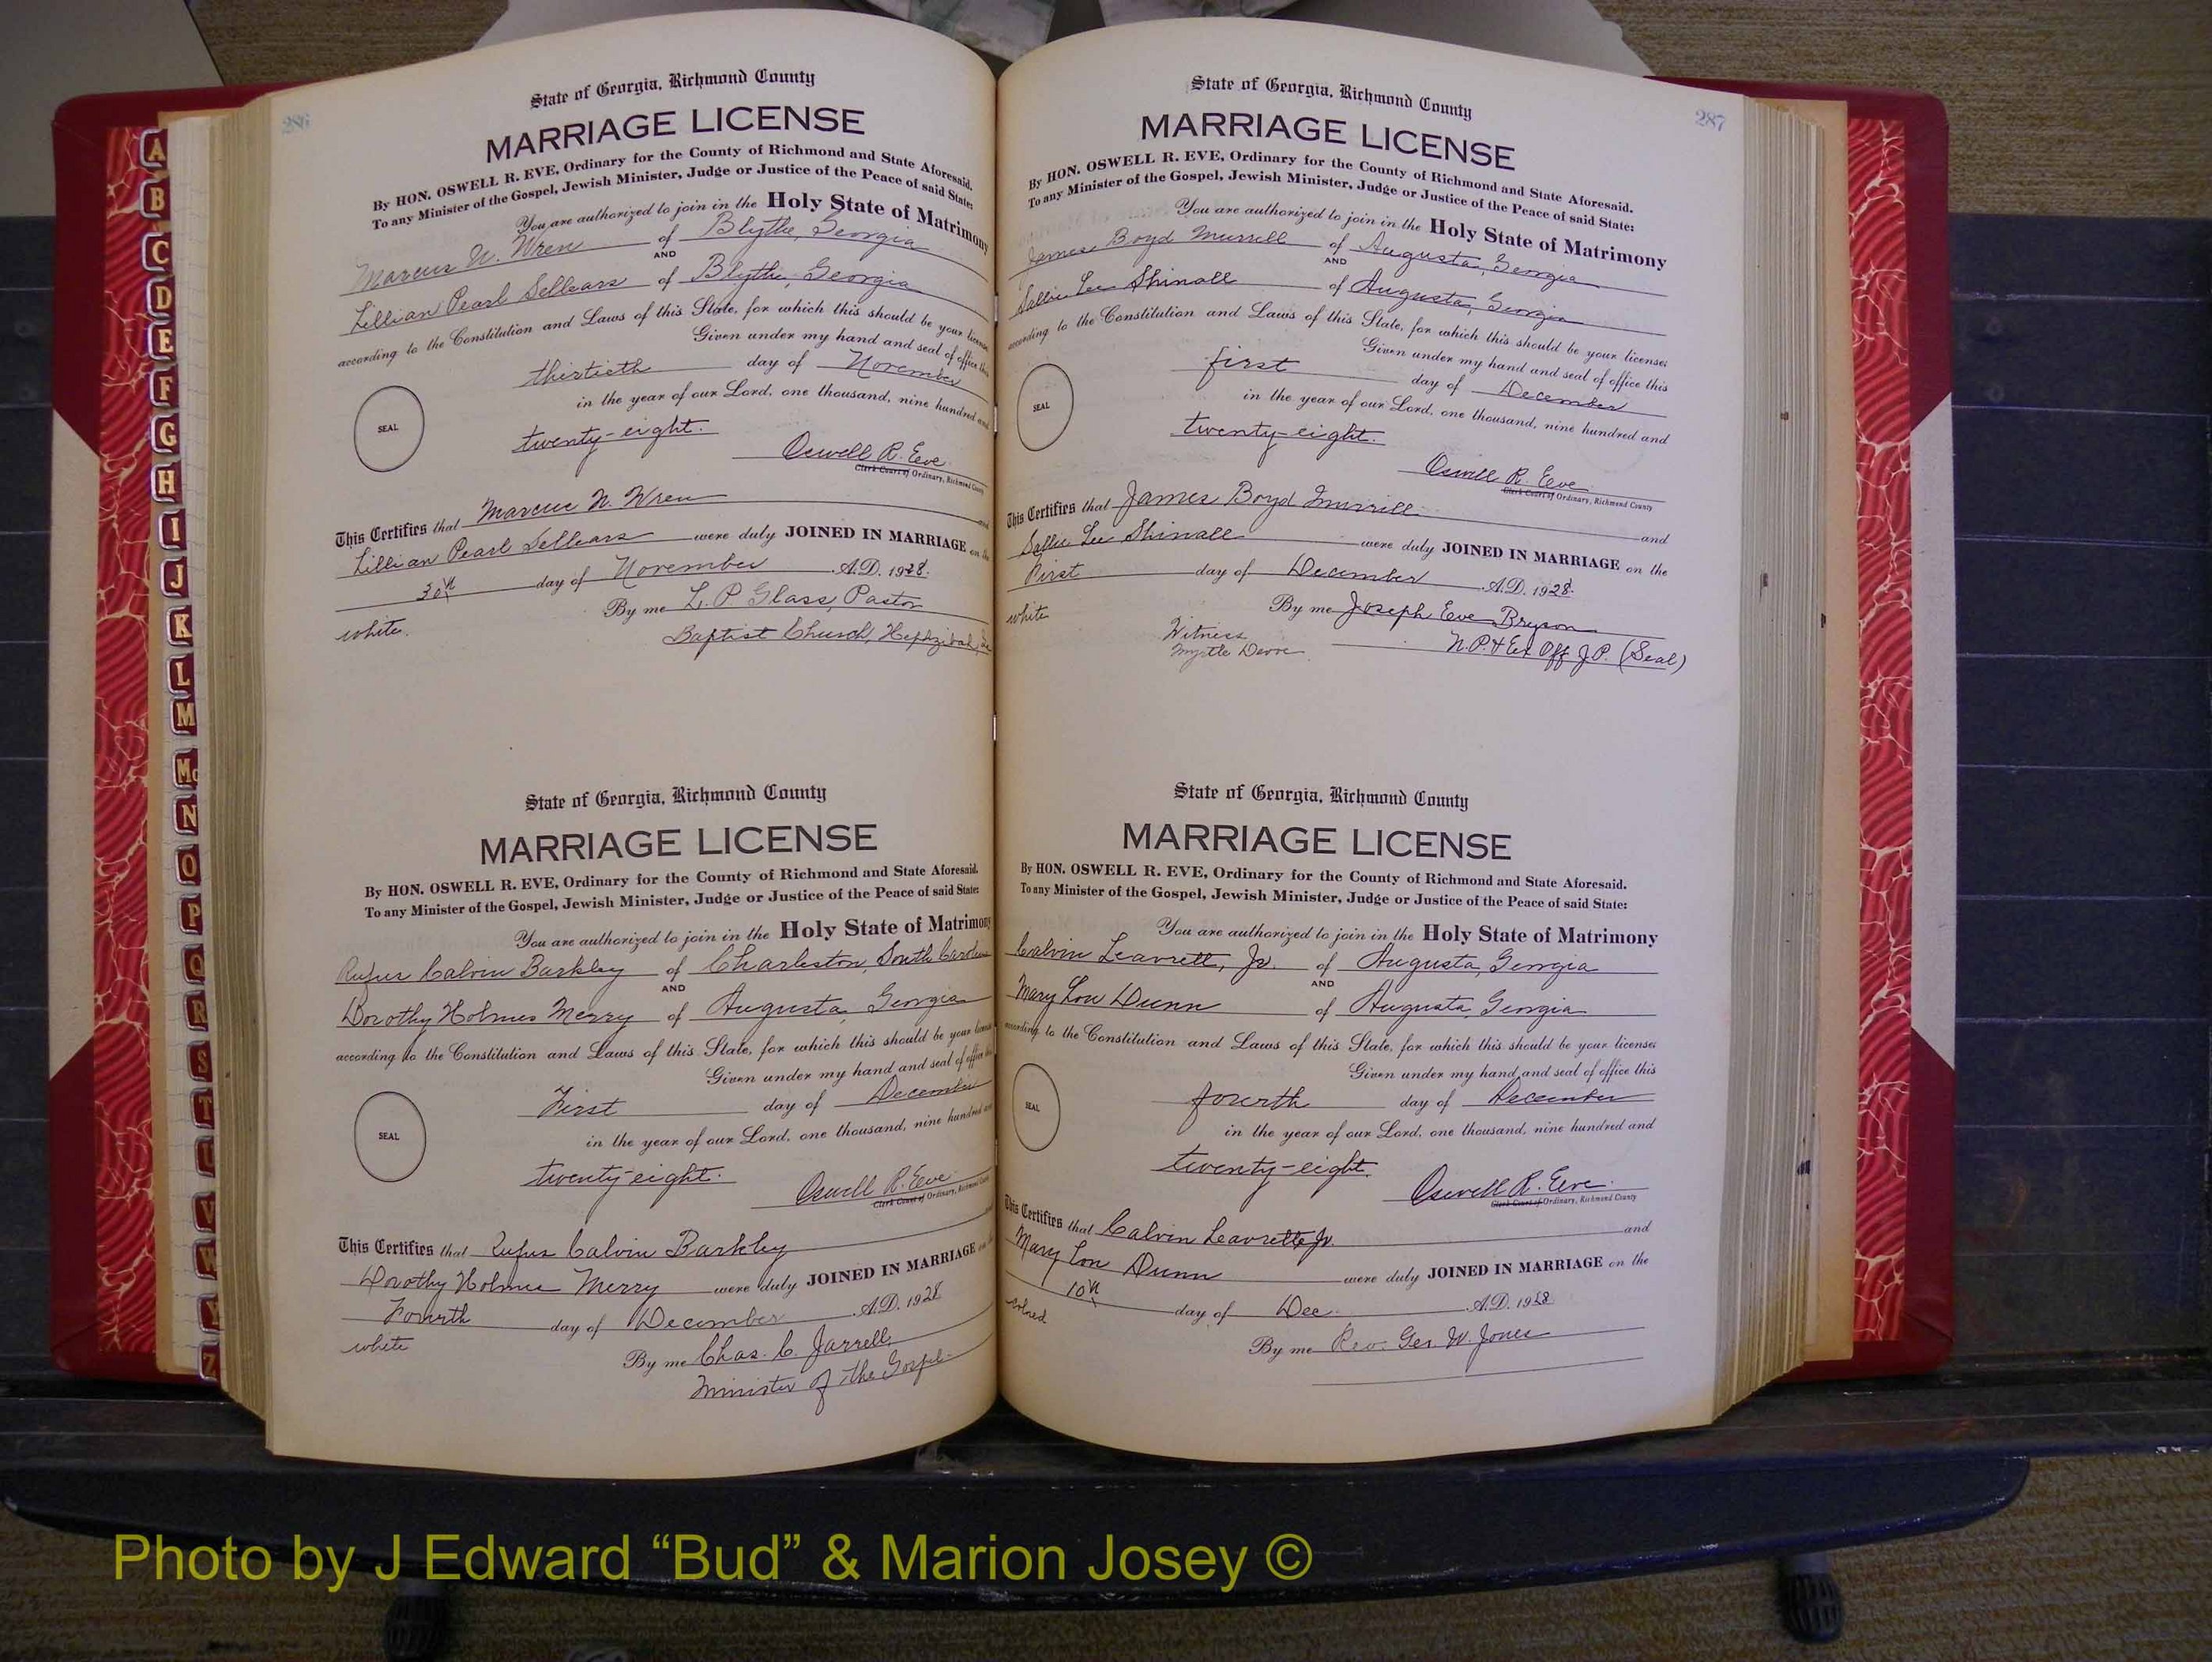 286
State of Georgia, Richmond County
MARRIAGE LICENSE
By HON. OSWELL R. EVE, Ordinary for the County of Richmond and State Aforesaid.
To any Minister of the Gospel, Jewish Minister, Judge or Justice of the Peace of said State:
You are authorized to join in the Holy State of Matrimony
Marcus N. Wren of Blythe, Georgia
AND
Lillian Pearl Sellears of Blythe, Georgia
according to the Constitution and Laws of this State, for which this should be your license
Given under my hand and seal of office this
thirtieth day of November
in the year of our Lord, one thousand, nine hundred and
SEAL
twenty-eight.
Oswell R. Eve
Clerk Court of Ordinary, Richmond County
This Certifies that Marcus N. Wren and
Lillian Pearl Sellears were duly JOINED IN MARRIAGE on the
30th day of November A.D. 1928.
By me L. P. Glass, Pastor
white.
Baptist Church, Hephzibah, Ga
State of Georgia, Richmond County
MARRIAGE LICENSE
By HON. OSWELL R. EVE, Ordinary for the County of Richmond and State Aforesaid.
To any Minister of the Gospel, Jewish Minister, Judge or Justice of the Peace of said State:
You are authorized to join in the Holy State of Matrimony
Rufus Calvin Barkley of Charleston, South Carolina
AND
Dorothy Holmes Merry of Augusta, Georgia
according to the Constitution and Laws of this State, for which this should be your license
Given under my hand and seal of office this
First day of December
in the year of our Lord, one thousand, nine hundred and
SEAL
twenty-eight.
Oswell R. Eve
Clerk Court of Ordinary, Richmond County
This Certifies that Rufus Calvin Barkley
Dorothy Holmes Merry were duly JOINED IN MARRIAGE on
Fourth day of December A.D. 1928
white
By me Chas. C. Jarrell,
Minister of the Gospel.
287
State of Georgia, Richmond County
MARRIAGE LICENSE
By HON. OSWELL R. EVE, Ordinary for the County of Richmond and State Aforesaid.
To any Minister of the Gospel, Jewish Minister, Judge or Justice of the Peace of said State:
You are authorized to join in the Holy State of Matrimony
James Boyd Murrell of Augusta, Georgia
AND
Sallie Lee Shinall of Augusta, Georgia
according to the Constitution and Laws of this State, for which this should be your license:
Given under my hand and seal of office this
first day of December
in the year of our Lord, one thousand, nine hundred and
SEAL
twenty-eight.
Oswell R. Eve
Clerk Court of Ordinary, Richmond County
This Certifies that James Boyd Murrill and
Sallie Lee Shinall were duly JOINED IN MARRIAGE on the
First day of December A.D. 1928.
white
By me Joseph Eve Bryson
Witness N.P. & Ex Off J.P. (Seal)
Myrtle
State of Georgia, Richmond County
MARRIAGE LICENSE
By HON. OSWELL R. EVE, Ordinary for the County of Richmond and State Aforesaid.
To any Minister of the Gospel, Jewish Minister, Judge or Justice of the Peace of said State:
You are authorized to join in the Holy State of Matrimony
Calvin Leavrett, Jr. of Augusta, Georgia
AND
Mary Lou Dunn of Augusta Georgia
according to the Constitution and Laws of this State, for which this should be your license:
Given under my hand and seal of office this
fourth day of December
in the year of our Lord, one thousand, nine hundred and
SEAL
twenty-eight.
Oswell R. Eve.
Clerk Court of Ordinary, Richmond County
This Certifies that Calvin Leavrette Jr. and
Mary Lou Dunn were duly JOINED IN MARRIAGE on the
10th day of Dec. A.D. 1928
colored.
By me Rev. Geo. W. Jones
A
B
C
D
E
F
G
H
I
J
K
L
M
Mc
N
O
P
Q
R
S
T
U
V
W
Y
Z
Photo by J Edward “Bud” & Marion Josey ©